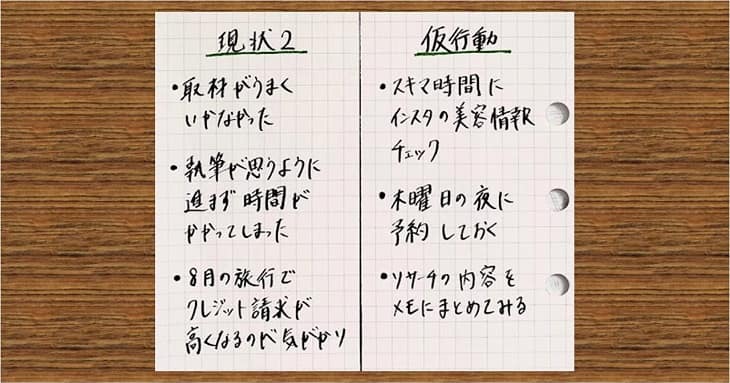 現状2
・取材がうまく
いかなかった
・執筆が思うように
進まず時間が
かかってしまった
・8月の旅行で
クレジット請求が
高くなるのが気がかり
仮行動
・スキマ時間に
インスタの美容情報
チェック
・木曜日の夜に
予約しておく
・リサーチの内容を
メモにまとめてみる